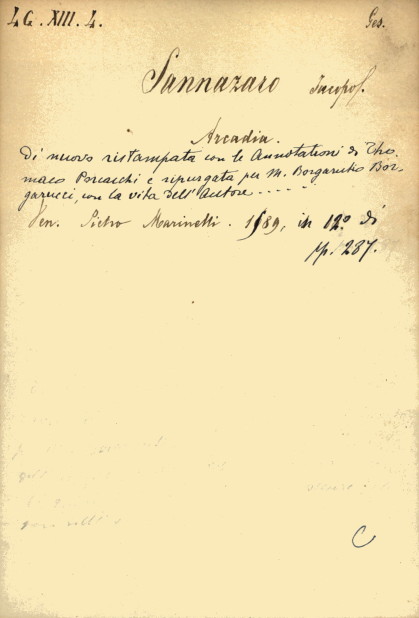 LG. XIII. L.
Ges.
Sannazaro Jacopo.
Arcadia.
di nuovo ristampata con le Annotationi di Tho
maso Porcacchi e ripurgata per M. Borgarutio Bor-
garucci, con la vita dell'Autore - - - -
Ven. Pietro Marinelli. 1589, in 12º di
pp. 287.
C